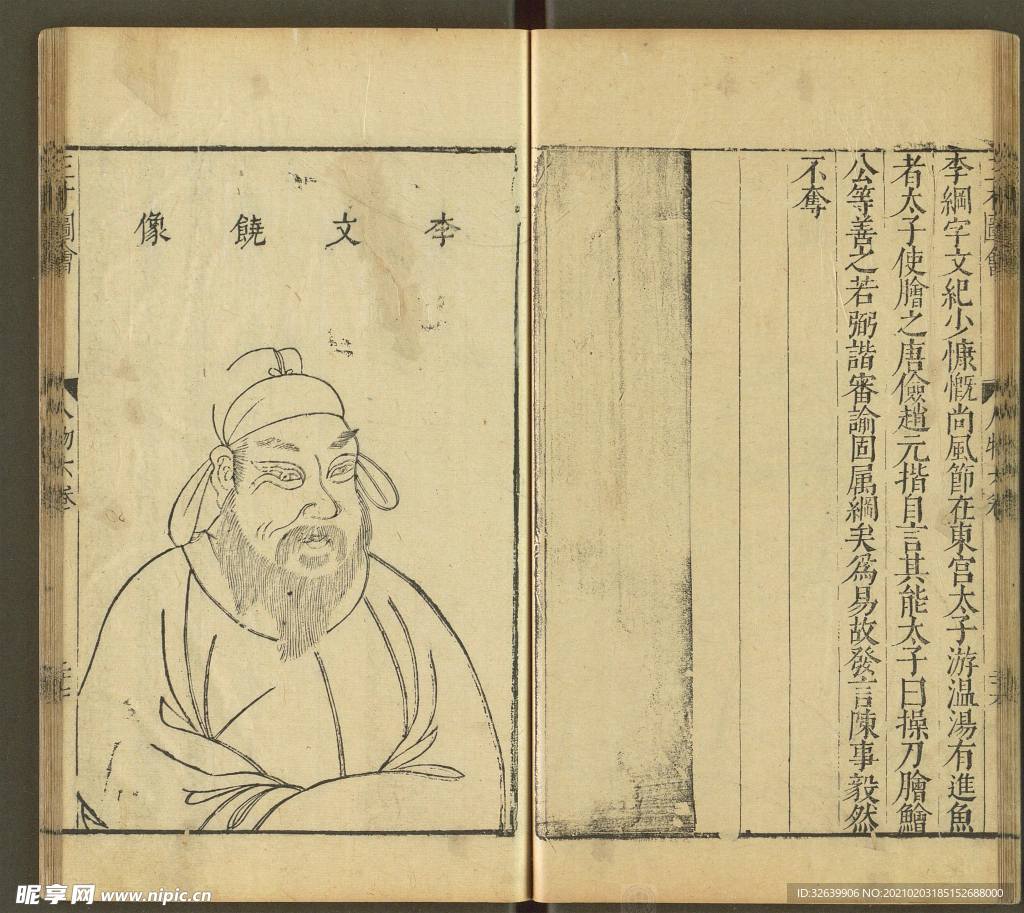 李綱字文紀少慷慨尚風節在東宮太子游温湯有進魚
者太子使膾之唐儉趙元揩自言其能太子曰操刀膾鱠
公等善之若弼諧審諭固属綱矣為易故發言陳事毅然
不奪
李文饒像
三才圖會
人物六卷
昵享网 www.nipic.cn
ID:32639906 NO:20210203185152688000